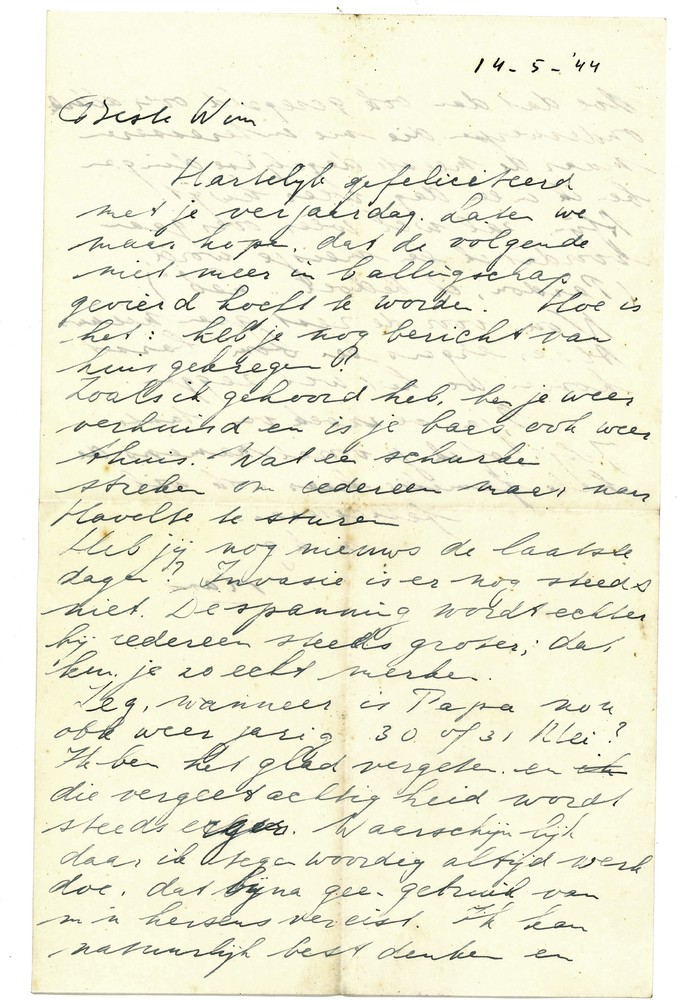 14-5-'44
Beste Wim
Hartelijk gefeliciteerd
met je verjaardag. Laten we
maar hopen, dat de volgende
niet meer in ballingschap
gevierd hoeft te worden. Hoe is
het: heb je nog bericht van
huis gekregen?
Zoals ik gehoord heb, ben je weer
verhuisd en is je baas ook weer
thuis. Wat een schurken
streken om iedereen maar naar
Havelte te sturen
Heb jij nog nieuws de laatste
dagen? Invasie is er nog steeds
niet. De spanning wordt echter
bij iedereen steeds groter; dat
kun je zo echt merken.
Zeg, wanneer is Papa nou
ook weer jarig 30 of 31 Mei?
Ik ben het glad vergeten. en
die vergeetachtigheid wordt
steeds erger. Waarschijnlijk
daar ik tegenwoordig altijd werk
doe, dat bijna geen gebruik van
m'n hersens vereist. Ik kan
natuurlijk best denken en